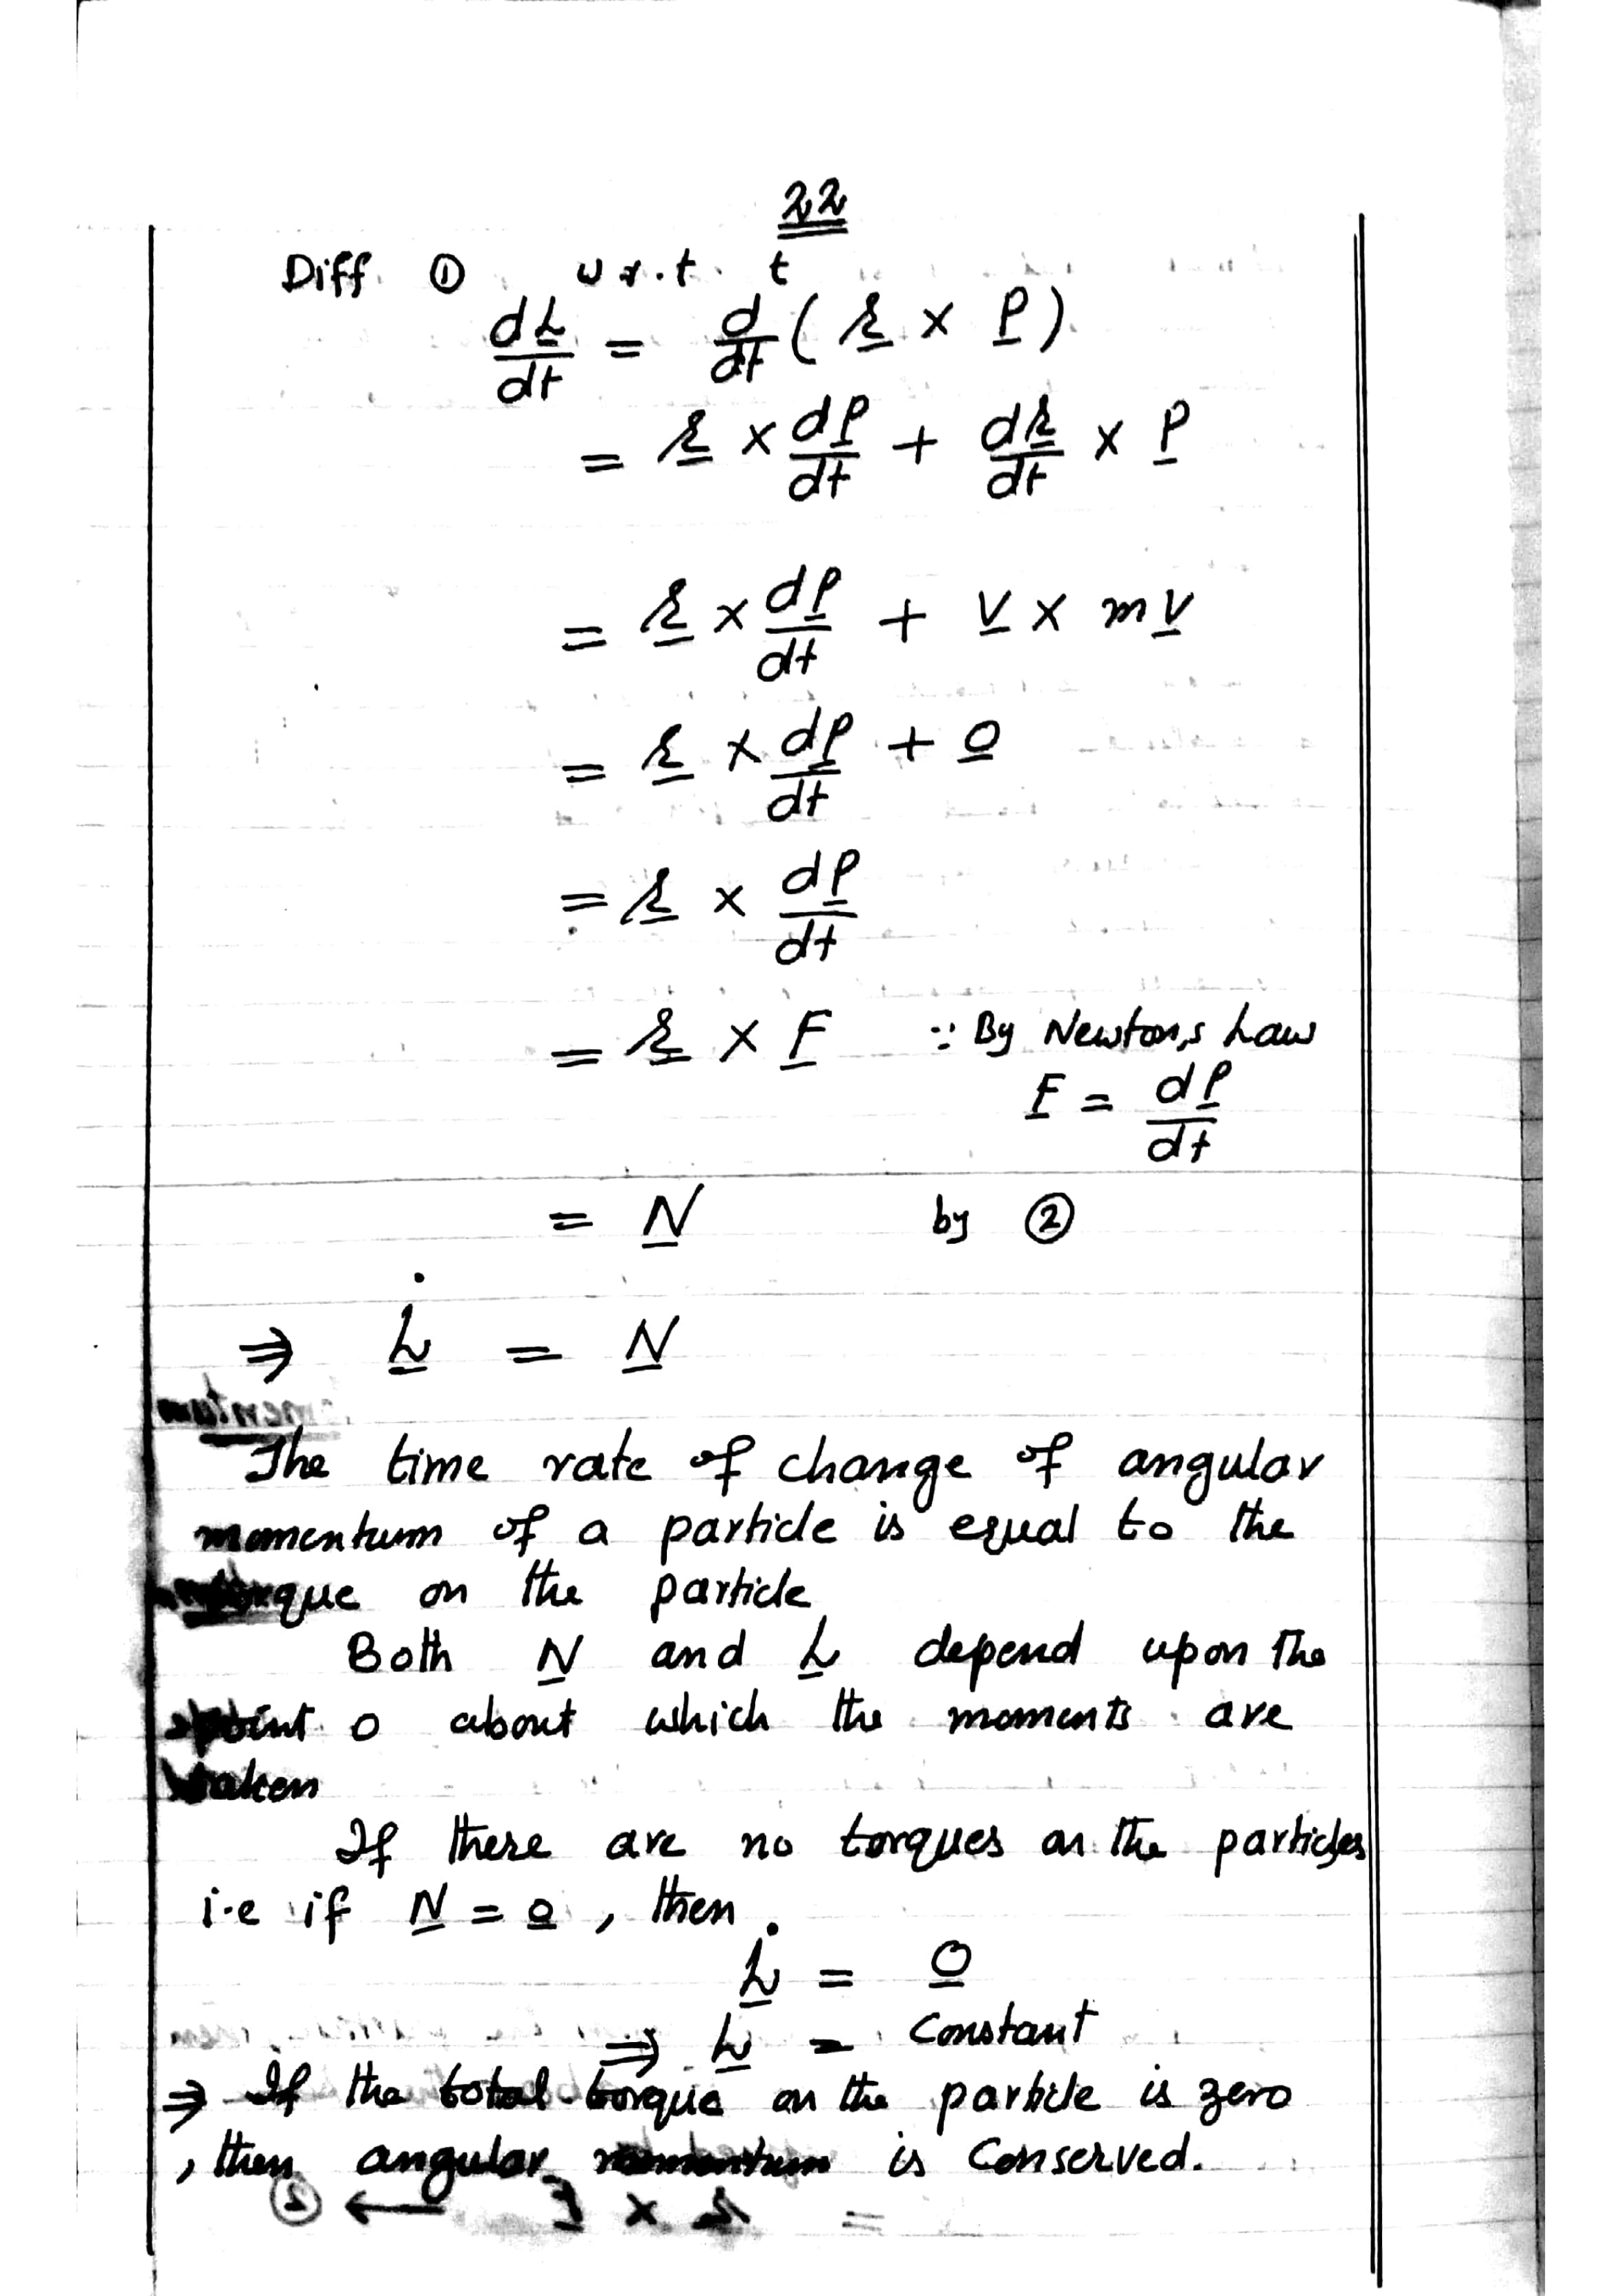 22
Diff ① w.r.t. t
dL/dt = d/dt (r × P)
= r × dP/dt + dr/dt × P
= r × dP/dt + V × mV
= r × dP/dt + 0
= r × dP/dt
= r × F ∵ By Newton,s Law
F = dP/dt
= N by ②
⇒ L̇ = N
The time rate of change of angular
momentum of a particle is equal to the
torque on the particle
Both N and L depend upon the
point o about which the moments are
taken
If there are no torques on the particles
i.e if N = 0, then
L̇ = 0
⇒ L = Constant
⇒ If the total torque on the particle is zero
, then angular momentum is Conserved.